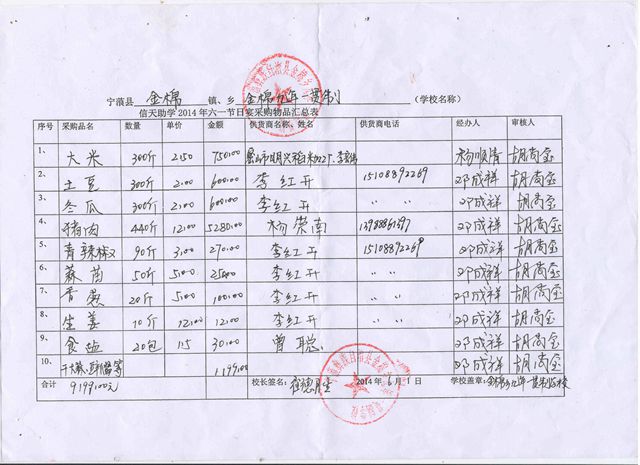 宁蒗县 金棉 镇、乡 金棉九年一贯制 (学校名称)
信天助学 2014 年六一节日宴采购物品汇总表
序号 采购品名 数量 单价 金额 供货商名称、姓名 供货商电话 经办人 审核人
1、 大米 300斤 2.50 750.00 杨顺清 胡尚宝
2、 土豆 300斤 2.00 600.00 李红开 15108892269 邓成祥 胡尚宝
3、 冬瓜 300斤 2.00 600.00 李红开 〃 〃 邓成祥 胡尚宝
4、 猪肉 440斤 12.00 5280.00 杨崇南 邓成祥 胡尚宝
5、 青辣椒 90斤 3.00 270.00 李红开 15108892269 邓成祥 胡尚宝
6、 蒜苗 50斤 5.00 250.00 李红开 〃 〃 邓成祥 胡尚宝
7、 青葱 20斤 5.00 100.00 李红开 〃 〃 邓成祥 胡尚宝
8、 生姜 10斤 12.00 李红开 〃 〃 邓成祥 胡尚宝
9、 食盐 20包 1.5 30.00 曾聪 邓成祥 胡尚宝
10、 1199.00 邓成祥 胡尚宝
合计 9199.00元 校长签名: 2014 年 6 月 1 日 学校盖章: